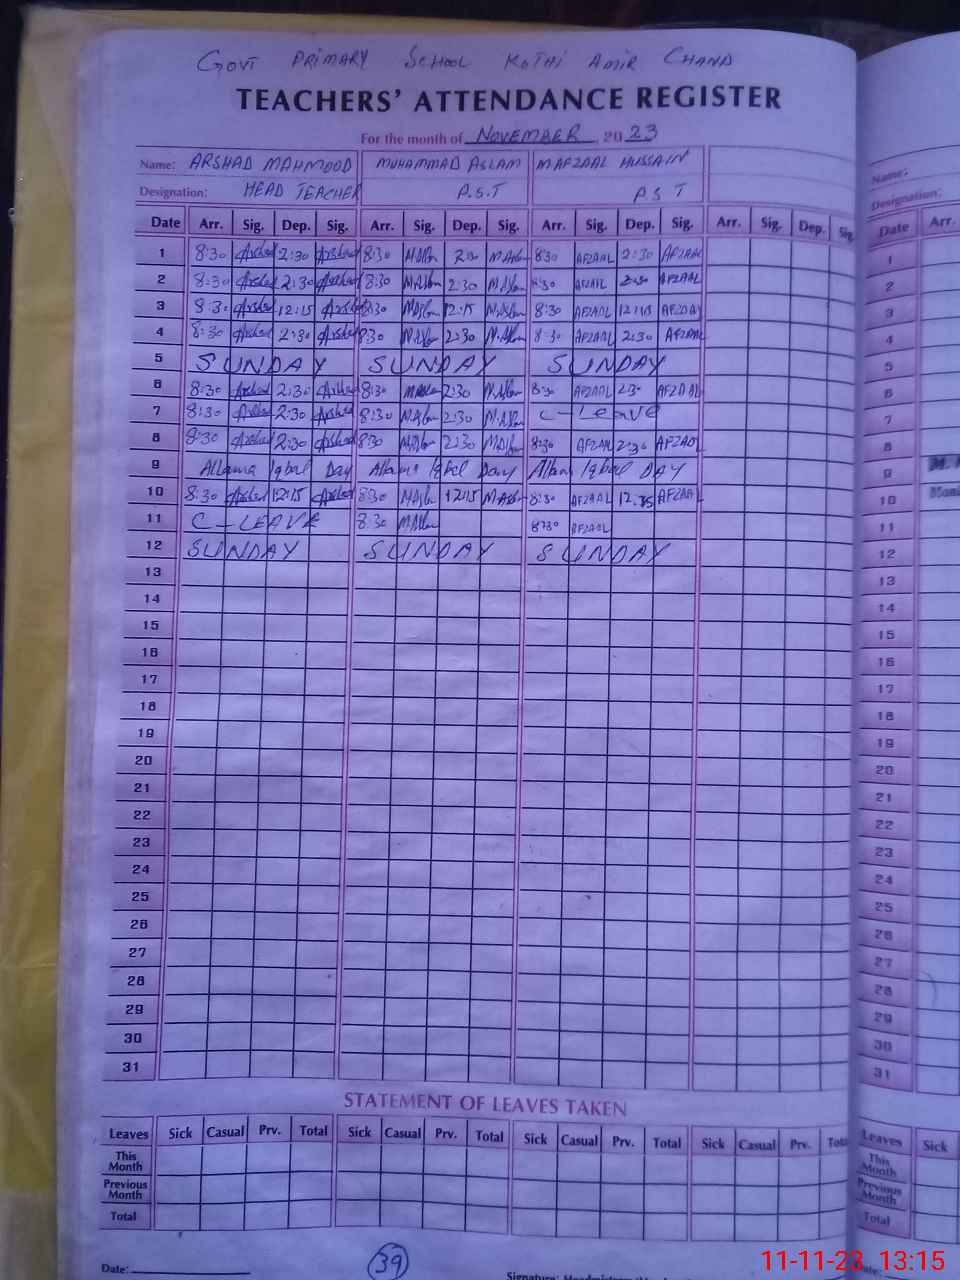 GOVT PRIMARY SCHOOL KOTHI AMIR CHAND
TEACHERS' ATTENDANCE REGISTER
For the month of NOVEMBER, 2023
Name: ARSHAD MAHMOOD MUHAMMAD ASLAM M AFZAAL HUSSAIN
Designation: HEAD TEACHER P.S.T P S T
Date Arr. Sig. Dep. Sig. Arr. Sig. Dep. Sig. Arr. Sig. Dep. Sig. Arr. Sig. Dep. Sig.
1 8:30 Arshad 2:30 Arshad 8:30 M.Aslam 2:30 M.Aslam 8:30 AFZAAL 2:30 AFZAAL
2 8:30 Arshad 2:30 Arshad 8:30 M.Aslam 2:30 M.Aslam 8:30 AFZAAL 2:30 AFZAAL
3 8:30 Arshad 12:15 Arshad 8:30 M.Aslam 12:15 M.Aslam 8:30 AFZAAL 12:15 AFZAAL
4 8:30 Arshad 2:30 Arshad 8:30 M.Aslam 2:30 M.Aslam 8:30 AFZAAL 2:30 AFZAAL
5 SUNDAY SUNDAY SUNDAY
6 8:30 Arshad 2:30 Arshad 8:30 M.Aslam 2:30 M.Aslam 8:30 AFZAAL 2:30 AFZAAL
7 8:30 Arshad 2:30 Arshad 8:30 M.Aslam 2:30 M.Aslam C-Leave
8 8:30 Arshad 2:30 Arshad 8:30 M.Aslam 2:30 M.Aslam 8:30 AFZAAL 2:30 AFZAAL
9 Allama Iqbal Day Allama Iqbal Day Allama Iqbal DAY
10 8:30 Arshad 12:15 Arshad 8:30 M.Aslam 12:15 M.Aslam 8:30 AFZAAL 12:15 AFZAAL
11 C-LEAVE 8:30 M.Aslam 8:30 AFZAAL
12 SUNDAY SUNDAY SUNDAY
13
14
15
16
17
18
19
20
21
22
23
24
25
26
27
28
29
30
31
STATEMENT OF LEAVES TAKEN
Leaves Sick Casual Prv. Total Sick Casual Prv. Total Sick Casual Prv. Total Sick Casual Prv.
This Month
Previous Month
Total
Date:
39
Name:
Designation:
Date Arr.
1
2
3
4
5
6
7
8
9
10
11
12
13
14
15
16
17
18
19
20
21
22
23
24
25
26
27
28
29
30
31
Leaves Sick
This Month
Previous Month
Total
11-11-23 13:15